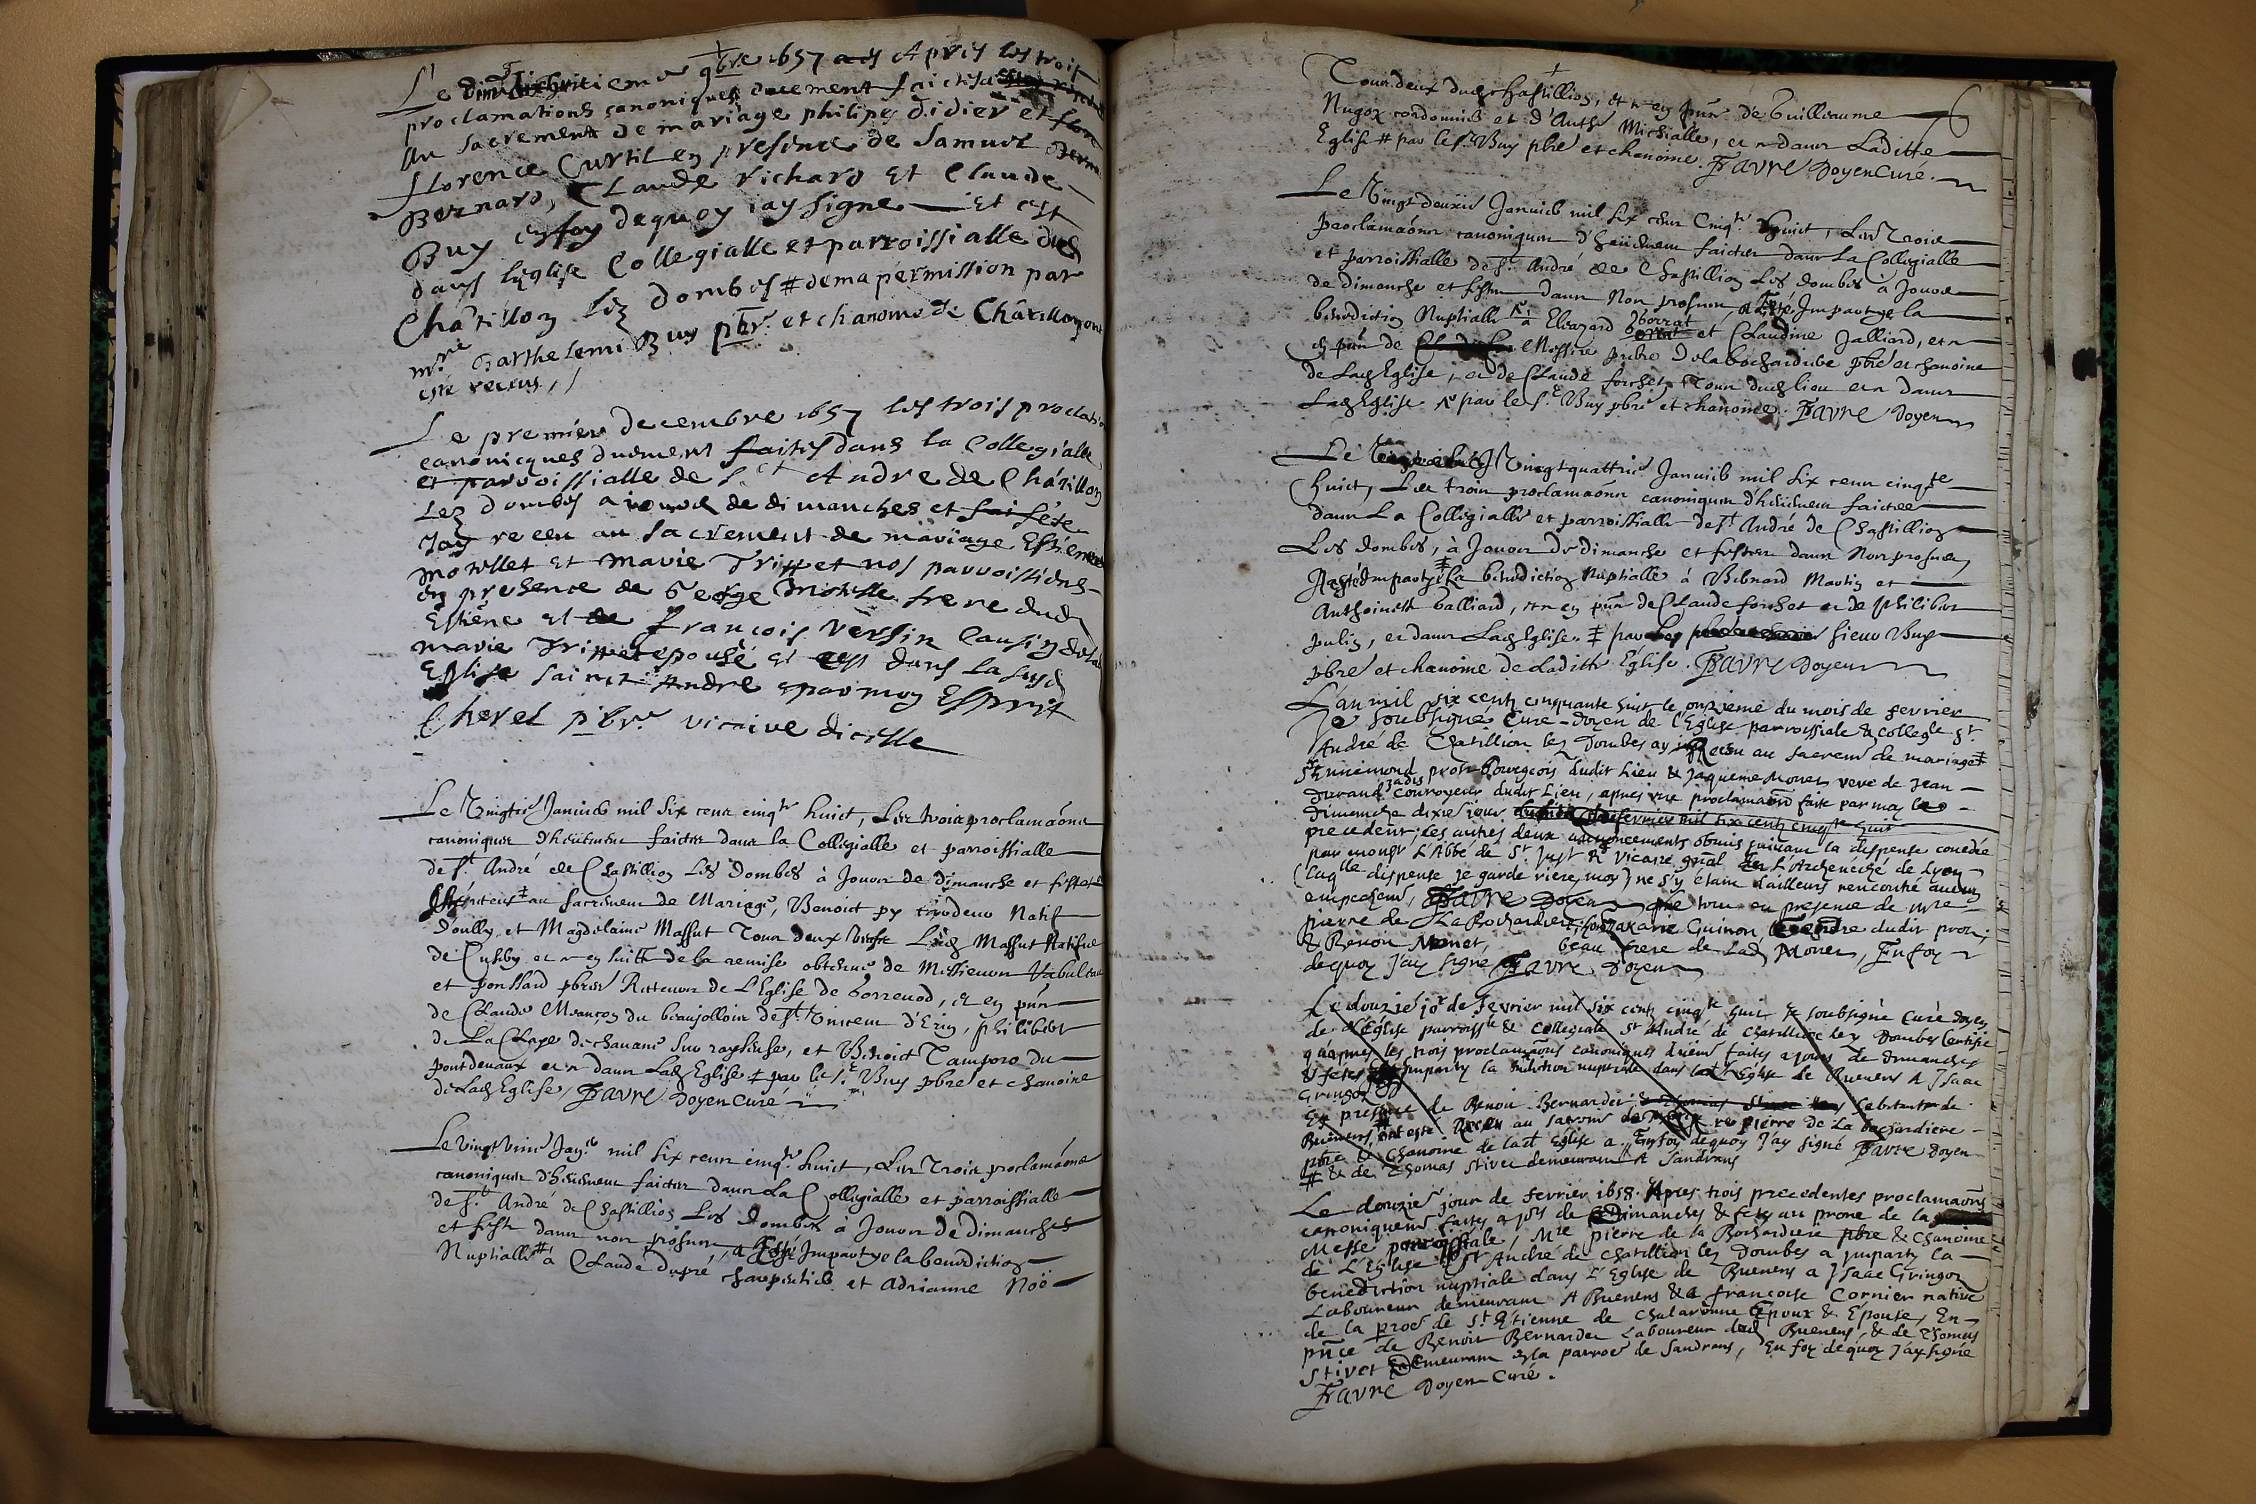 Le dixhuitieme 9bre 1657 Apres les trois
proclamations canoniques duement faictes
Au sacrement de mariage philipes didier et
florence Curtil en presence de Samuel
Bernard, Claude richard Et Claude
Buy en foy dequoy iay signe Et cest
dans leglise Collegialle et parroissialle dud
Châtillon lez Dombes # de ma permission par
mre Barthelemi Buy pbr et chanoine de Châtillon
esté receus //
Le premier decembre 1657 les trois proclatio
canonicques duement faites dans la Collegialle
et parroissialle de sct Andre de Châtillon
Lez Dombes a iours de dimanches et féte
Jay receu au sacrement de mariage Estiene
morellet Et Marie Trippet nos parroissiens
en presence de George frere dud
Estiene et de françois Versin Cousin de la
marie Trippet epousé Et dans la susd
Eglise sainct Andre par moy Esprit
Cheret pbr vicaire dicelle
Le Vingtie Janvier mil six cens cinqte huict, Les trois proclamaôns
canoniques dheüement faictes dans la Collegialle et parroissialle
de St André de Chastillion Les Dombes à Jour de dimanche et festes
au sacrement de Mariage, Benoict py natif
d'oully et Magdelaine Massut Tous deux Lad Massut Natifue
de et en suitte de la remise obtenue de Messieurs
et ponssard pbres Recteurs de L'Eglise de, et en pñce
de Claude Mançon du beaujollois de St Vincent d'Erin, philibert
de La Claye de chavane sur raysouse, et Benoict Tamporo du
pontdevaux et dans Lad Eglise # par le Sr Buy pbre et chanoine
de Lad Eglise / Favre Doyen Curé
Le vingt unie Janr mil six cens cinqte huict, Les Trois proclamaôns
canoniques d'heüement faictes dans La Collegialle et parroissialle
de St André de Chastillion Les Dombes à Jour de Dimanches
et feste dans nos prosnes, a Esté Impartye la benediction
Nuptialle # à Claude Dupré charpentier et Adrianne Noë
Tous deux dud Chastillion, et en pñce de Guilleaume
Nugoz cordonnier et d'Anthe Michialle, et dans Laditte
Eglise # par le Sr Buy pbre et chanoine. Favre Doyen Curé.
6
Le Vingt deuxie Janvier mil six cens Cinqte huict, Les Trois
proclamaôns canoniques d'heüement faictes dans La Collegialle
et parroissialle de St André de Chastillion Les Dombes à Jour
de dimanche et festes dans Nos prosnes, a Esté Impartye la
benediction Nuptialle # à Eleazard borrat et Claudine Jalliard, et
en pñce de Messire pierre de la bochardiere pbre et chanoine
de Lad Eglise, et de Claude forchet Tous dud lieu et dans
Lad Eglise # par le Sr Buy pbre et chanoine. Favre Doyen
Le Vingt quattrie Janvier mil six cens cinqte
huict, Les trois proclamaôns canoniques dheüement faictes
dans La Collegialle et parroissialle de St André de Chastillion
Les Dombes, à Jour de dimanche et festes dans Nos prosnes
A esté Impartye # La benediction Nuptialle à Bernard Martin et
Anthoinette Galliard, et en pñce de Claude forchet et de Philibert
Julin, et dans Lad Eglise. # par sieur Buy
pbre et chanoine de Laditte Eglise. Favre Doyen
L'an mil six cents cinquante huit le onzieme du mois de fevrier
Je soubsigné Curé-Doyen de l'Eglise parroissiale & collegle St
André de Chatillion les Dombes ay Receu au sacremt de mariage #
Sr Ennemond prost Bourgeois dudit Lieu & Jaqueme Monet veve de Jean
Durand jadis Courroyeur dudit Lieu, apres une proclamaôn faite par moy le
Dimanche dixie jour du mois de fevrier mil six cents cinqte huit
precedent; les autres deux annoncements obmis suivant la dispense concedée
par monsr L'Abbé de St Just & Vicaire gnal en L'Archevêché de Lyon
(laqlle dispense je garde riere moy) ne s'y étant d'ailleurs rencontré aucun
empechemt, Favre Doyen le tout en presence de mre
pierre de La Bochardiere, Zakarie Guinon gendre dudit prost,
& Benoit Monet, beau frere de Lad Monet, En foy
dequoy J'ay signé Favre Doyen
Le douzie jor de fevrier mil six cents cinqte huit Je soubsigné Curé Doyen
de l'Eglise parroissle & collegiale St André de Chatillion lez Dombes Certifie
qu'apres les trois proclamaôns canoniques düemt faites a jours de Dimanches
& fetes imparty la benediction nuptiale dans lad Eglise de Buenens A Isaac
Gringoz
En presence de Benoit Bernardet habitants de
Buenens, ont esté Receu au sacremt de par pierre de La Bochardiere
pbre & Chanoine de ladt Eglise. En foy dequoy J'ay signé Favre Doyen
# & de Thomas Stivet demeurant A Sandrans
Le douzie jour de fevrier 1658. Apres trois precedentes proclamaôns
canoniques faites a jors de Dimanches & fete au prone de la
Messe parroissiale, Mre pierre de la Bochardiere pbre & Chanoine
de L'Eglise St André de Chatillion lez Dombes a imparty la
benediction nuptiale dans L'Eglise de Buenens a Isaac Gringoz
Laboureur demeurant A Buenens & a francoise Cornier native
de la proe de St Etienne de Chalaronne Epoux & Epouse, En
pñce de Benoit Bernardet Laboureur dud Buenens, & de Thomas
Stivet demeurant en la parroe de Sandrans, En foy dequoy J'ay signé
Favre Doyen Curé.